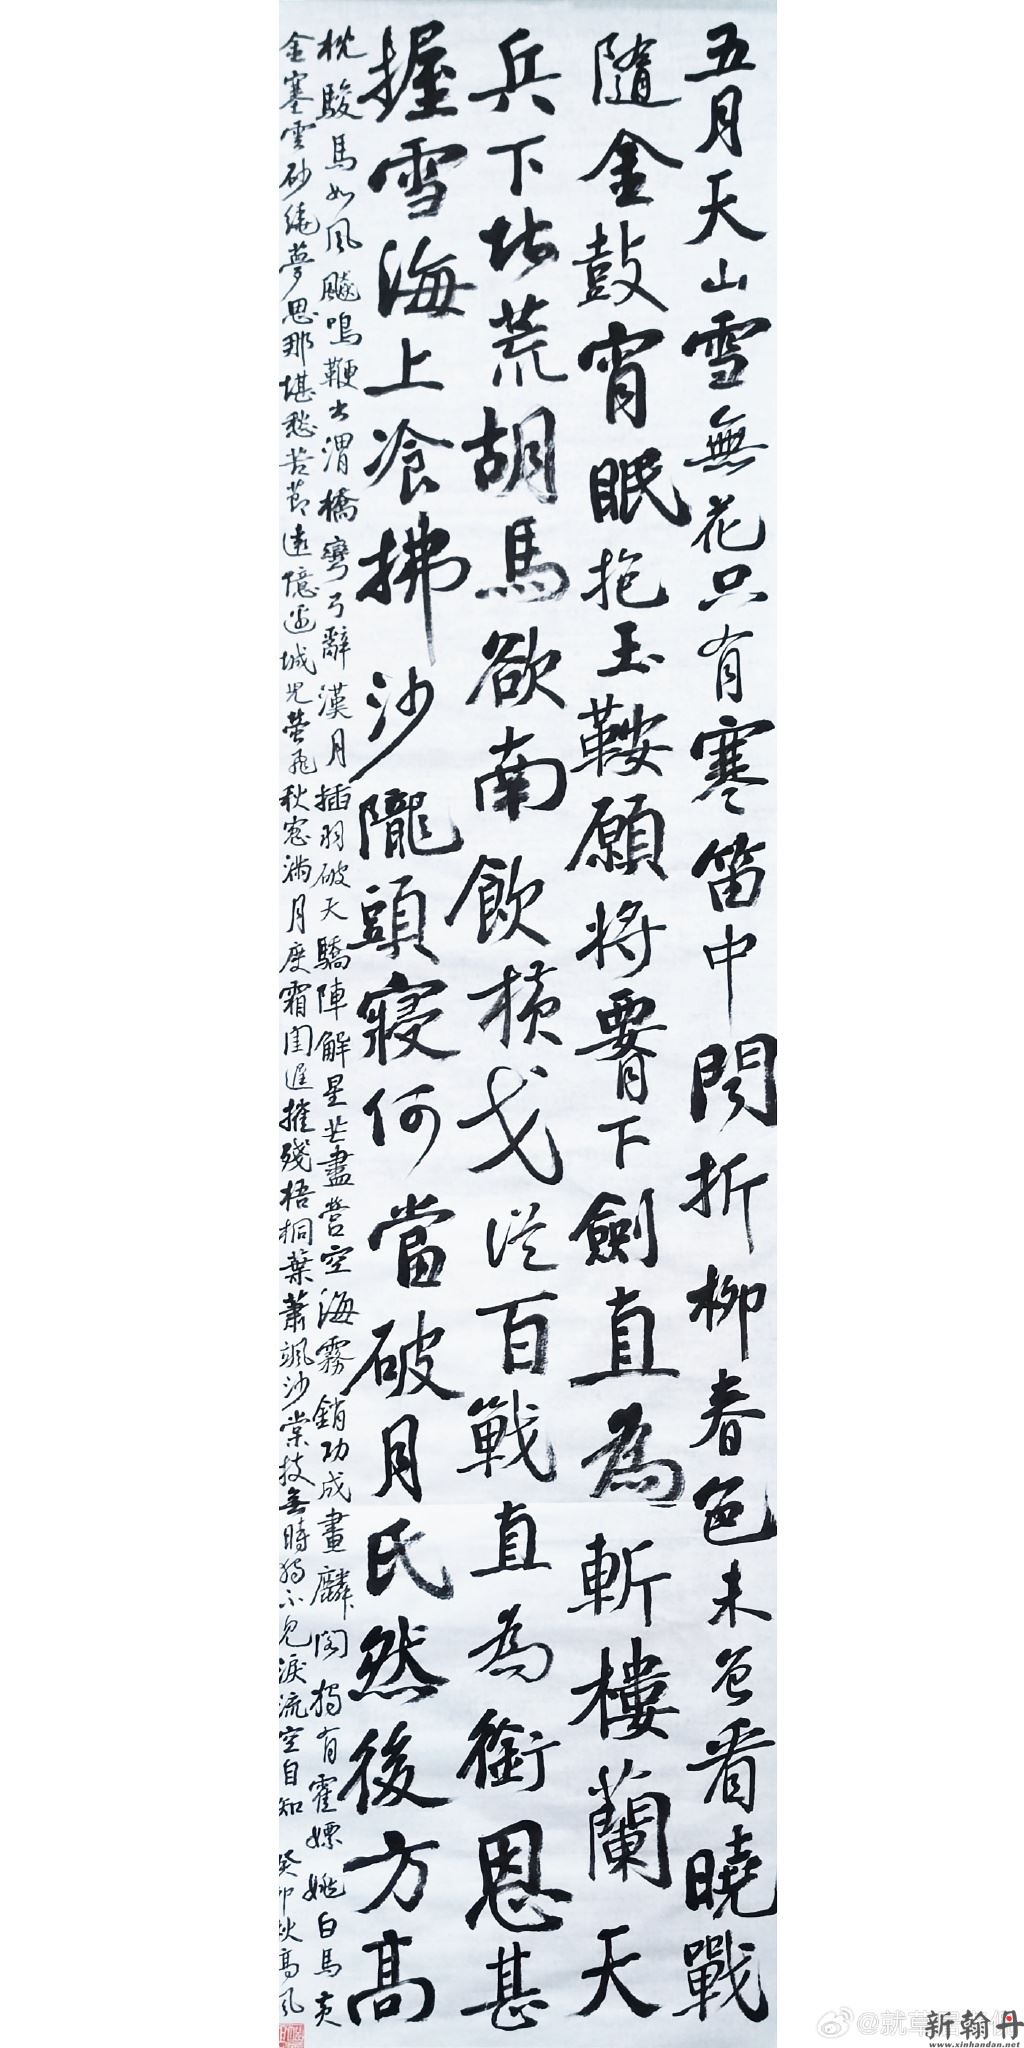 五月天山雪無花只有寒笛中聞折柳春色未曾看曉戰
隨金鼓宵眠抱玉鞍願將腰下劍直為斬樓蘭天
兵下北荒胡馬欲南飲橫戈從百戰直為銜恩甚
握雪海上飡拂沙隴頭寢何當破月氏然後方高
枕駿馬如風飈鳴鞭出渭橋彎弓辭漢月插羽破天驕陣解星芒盡營空海霧銷功成畫麟閣獨有霍嫖姚白馬黃
金塞雲砂繞夢思那堪愁苦節遠憶邊城兒螢飛秋窓滿月度霜閨遲摧殘梧桐葉蕭颯沙棠枝無時獨不見淚流空自知 癸卯秋高風
新翰丹
www.xinhandan.net